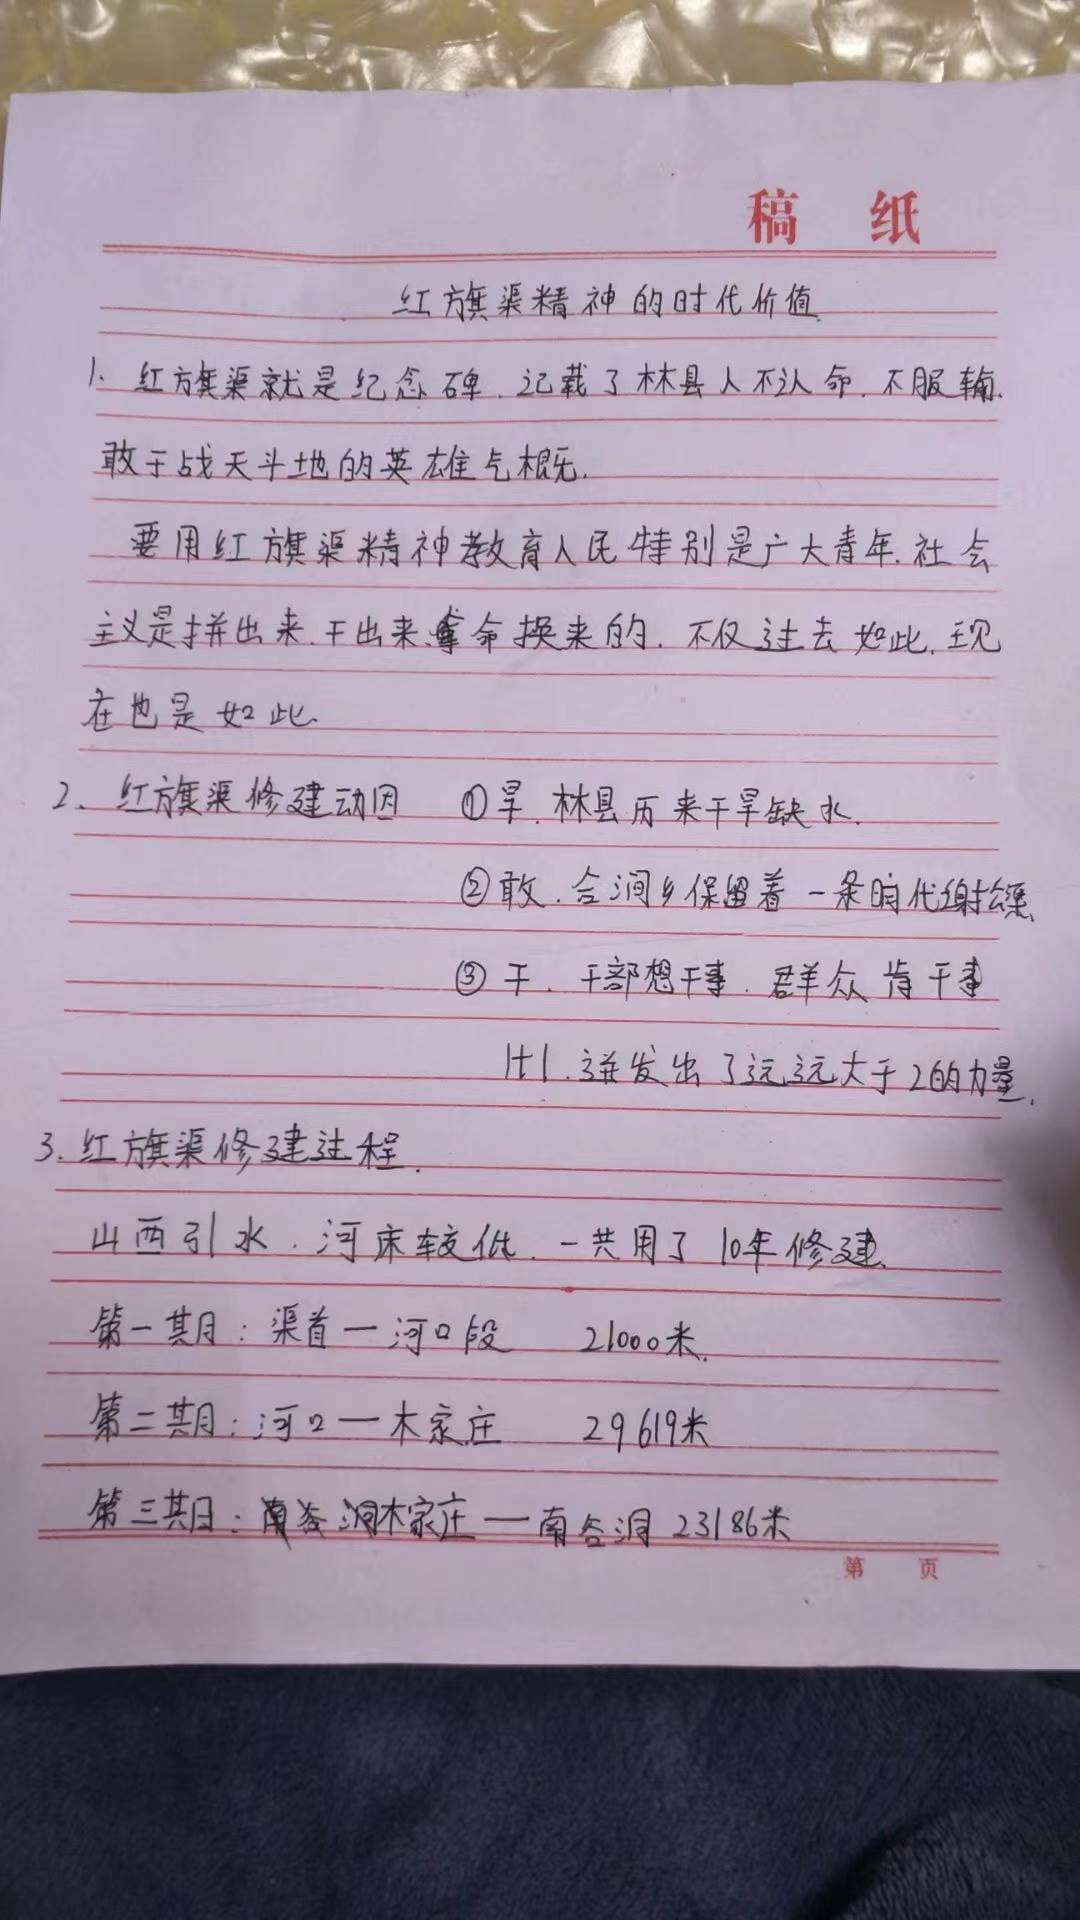 稿 纸
红旗渠精神的时代价值
1. 红旗渠就是纪念碑.记载了林县人不认命.不服输.
敢于战天斗地的英雄气概.
要用红旗渠精神教育人民特别是广大青年.社会
主义是拼出来.干出来.拿命换来的.不仅过去如此.现
在也是如此.
2. 红旗渠修建动因 ①旱.林县历来干旱缺水.
②敢.合涧乡保留着一条明代谢公渠.
③干.干部想干事.群众肯干事
1+1.迸发出了远远大于2的力量.
3.红旗渠修建过程.
山西引水.河床较低.一共用了10年修建.
第一期：渠首一河口段 21000米.
第二期：河口一木家庄 29619米
第三期：木家庄一南谷洞 23186米
第 页